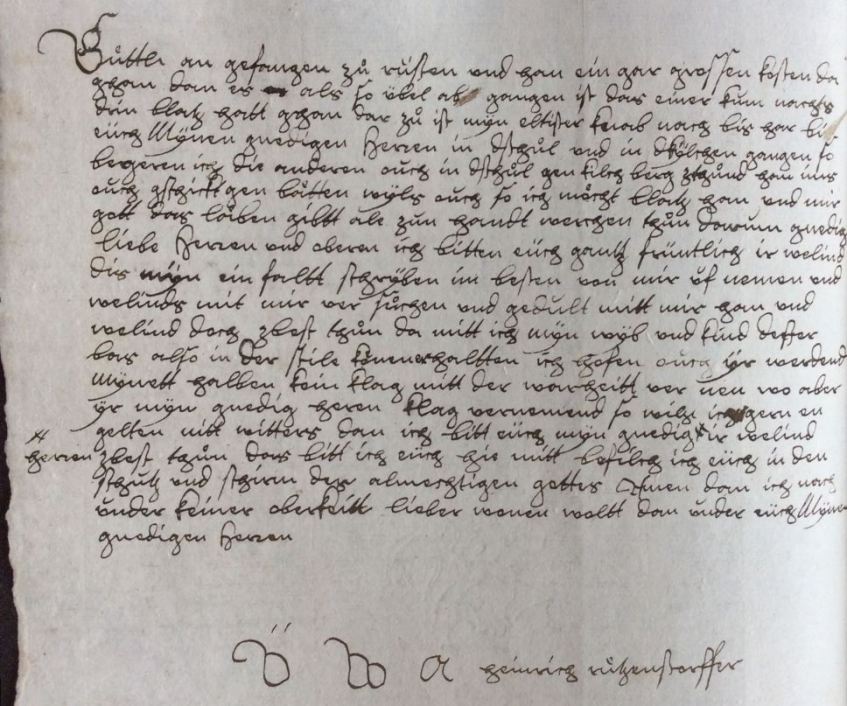 Güttli an gefangen zů rüsten und han ein gar grossen kosten da
ghan dan es als so übel ab gangen ist das einer kum nachts
drin blatz hatt ghan dar zů ist myn eltister knab nach bis har bis
eüch Mynen gnedigen Herren in dschůl und in dkylchen gangen so
begeren ich die anderen ouch in dschůl gen kilch berg zthůnd han ims
ouch gschickt gen bätten wyls ouch so ich möcht blatz han und mir
gott das läben gibtt ale zun handt werchen thůn darum gnedig
liebe Herren und oberen ich bitten eüch gantz früntlich ir welind
dis myn ein faltt schryben im besten von mir uf nemen und
welinds mit mir ver sůchen und gedult mitt mir han und
welind doch zbest thůn da mitt ich myn wyb und kind dester
bas also in der stile könen erhaltten ich hofen ouch yr werdend
mynett halben kein klag mitt der warheitt ver nen wo aber
yr myn gnedig heren klag vernemend so wils ich gern en
gelten nitt witters dan ich bitt eüch myn gnedig ir welind
herren zbest thůn das bitt ich eüch hie mitt befilch ich eüch in den
schutz und schirm des almechtigen gottes Amen dan ich nach
under keiner oberkeitt lieber wonen woltt dan under eüch Mynen
gnedigen Herren
Ü W A heinrich růtzenstorffer